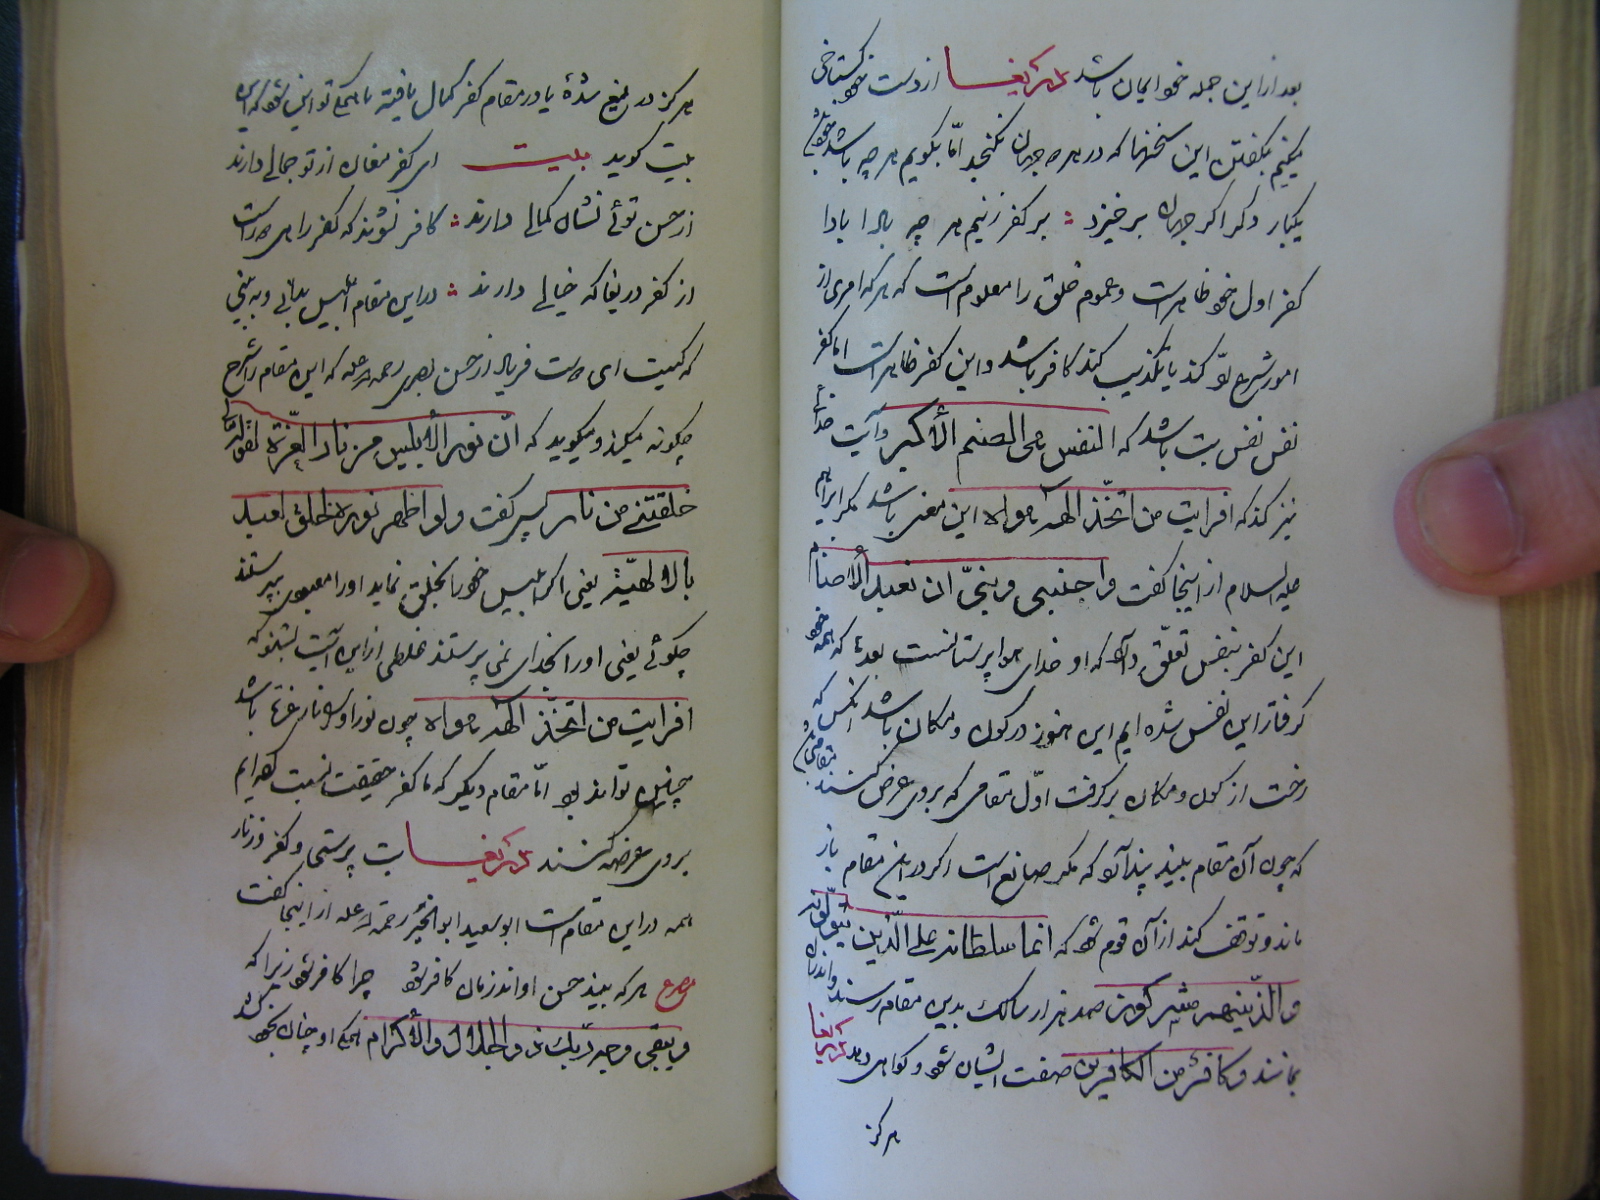 بعد از این جمله خود ایمان باشد ای دریغا از دست خود گستاخی
میکنیم بگفتن این سخنها که در هر دو جهان نگنجد امّا بگویم هر چه باشد
یکبار دگر اگر جهان برخیزد بر کفر زنیم هر چه بادا بادا
کفر اول خود ظاهرست و عموم خلق را معلوم است که هر که امری از
امور شرع ردّ کند یا تکذیب کند کافر باشد و این کفر ظاهرست اما کفر
نفس نفس بت باشد که النفس هی الصنم الأکبر و آیت
نیز کند که افرایت من اتّخذ الهه هواه این معنی باشد مگر ابراهیم
علیه السلام از اینجا گفت واجنبنی وبنیّ ان نعبد الأصنام
این کفر بنفس تعلّق دارد که او خدای هواپرستانست بعد که همه خود
گرفتار این نفس شده ایم این هنوز در کون و مکان باشد آنکس که
رخت از کون و مکان برگرفت اوّل مقامی که بر وی عرض کنند مقامی
که چون آن مقام ببیند پندارد که مگر صانع است اگر در این مقام باز
ماند و توقف کند از آن قوم شود که انما سلطانه علی الّذین یتولّونه
والّذینهم مشرکون صد هزار سالک بدین مقام رسند و اندران
بمانند و کان من الکافرین صفت ایشان شود و گواهی دهد ای دریغا
هرگز
هرگز در میغ شدهٔ یا در مقام کفر کمال یافته تو این شود که این
بیت گوید بیت ای کفر مغان از تو جمالی دارند
از حسن توئی نشان کمالی دارند کافر نشوند که کفر راهی است
از کفر دریغا که خیالی دارند در این مقام ابلیس بدانی و به بینی
که کیست ای دوست فریاد از حسن بصری رحمه الله علیه که این مقام را شرح
چگونه میکند و میگوید که انّ نور الأبلیس من نار العزّة لقوله تعالی
خلقتنی من نار پس گفت ولو اظهر نوره للخلق لعبد
بالالهیّة یعنی اگر ابلیس خود را بخلق نماید او را معبودی پرستند
چگوئی یعنی او را بخدای نمی پرستند غلطی از این آیت بشنو که
افرایت من اتّخذ الهه هواه چون نور او از نار عزّت باشد
چنین تواند بود امّا مقام دیگر که ما کفر حقیقت نسبت کرده ایم
بر وی عرضه کنند ای دریغا بت پرستی و کفر و زنار
همه در این مقام است ابو سعید ابو الخیر رحمة الله علیه از اینجا گفت
مصرع هر که ببیند حسن او اندر زمان کافر شود چرا کافر شود زیرا که
ویبقی وجه ربّک ذو الجلال والأکرام او چنان بخود کشد